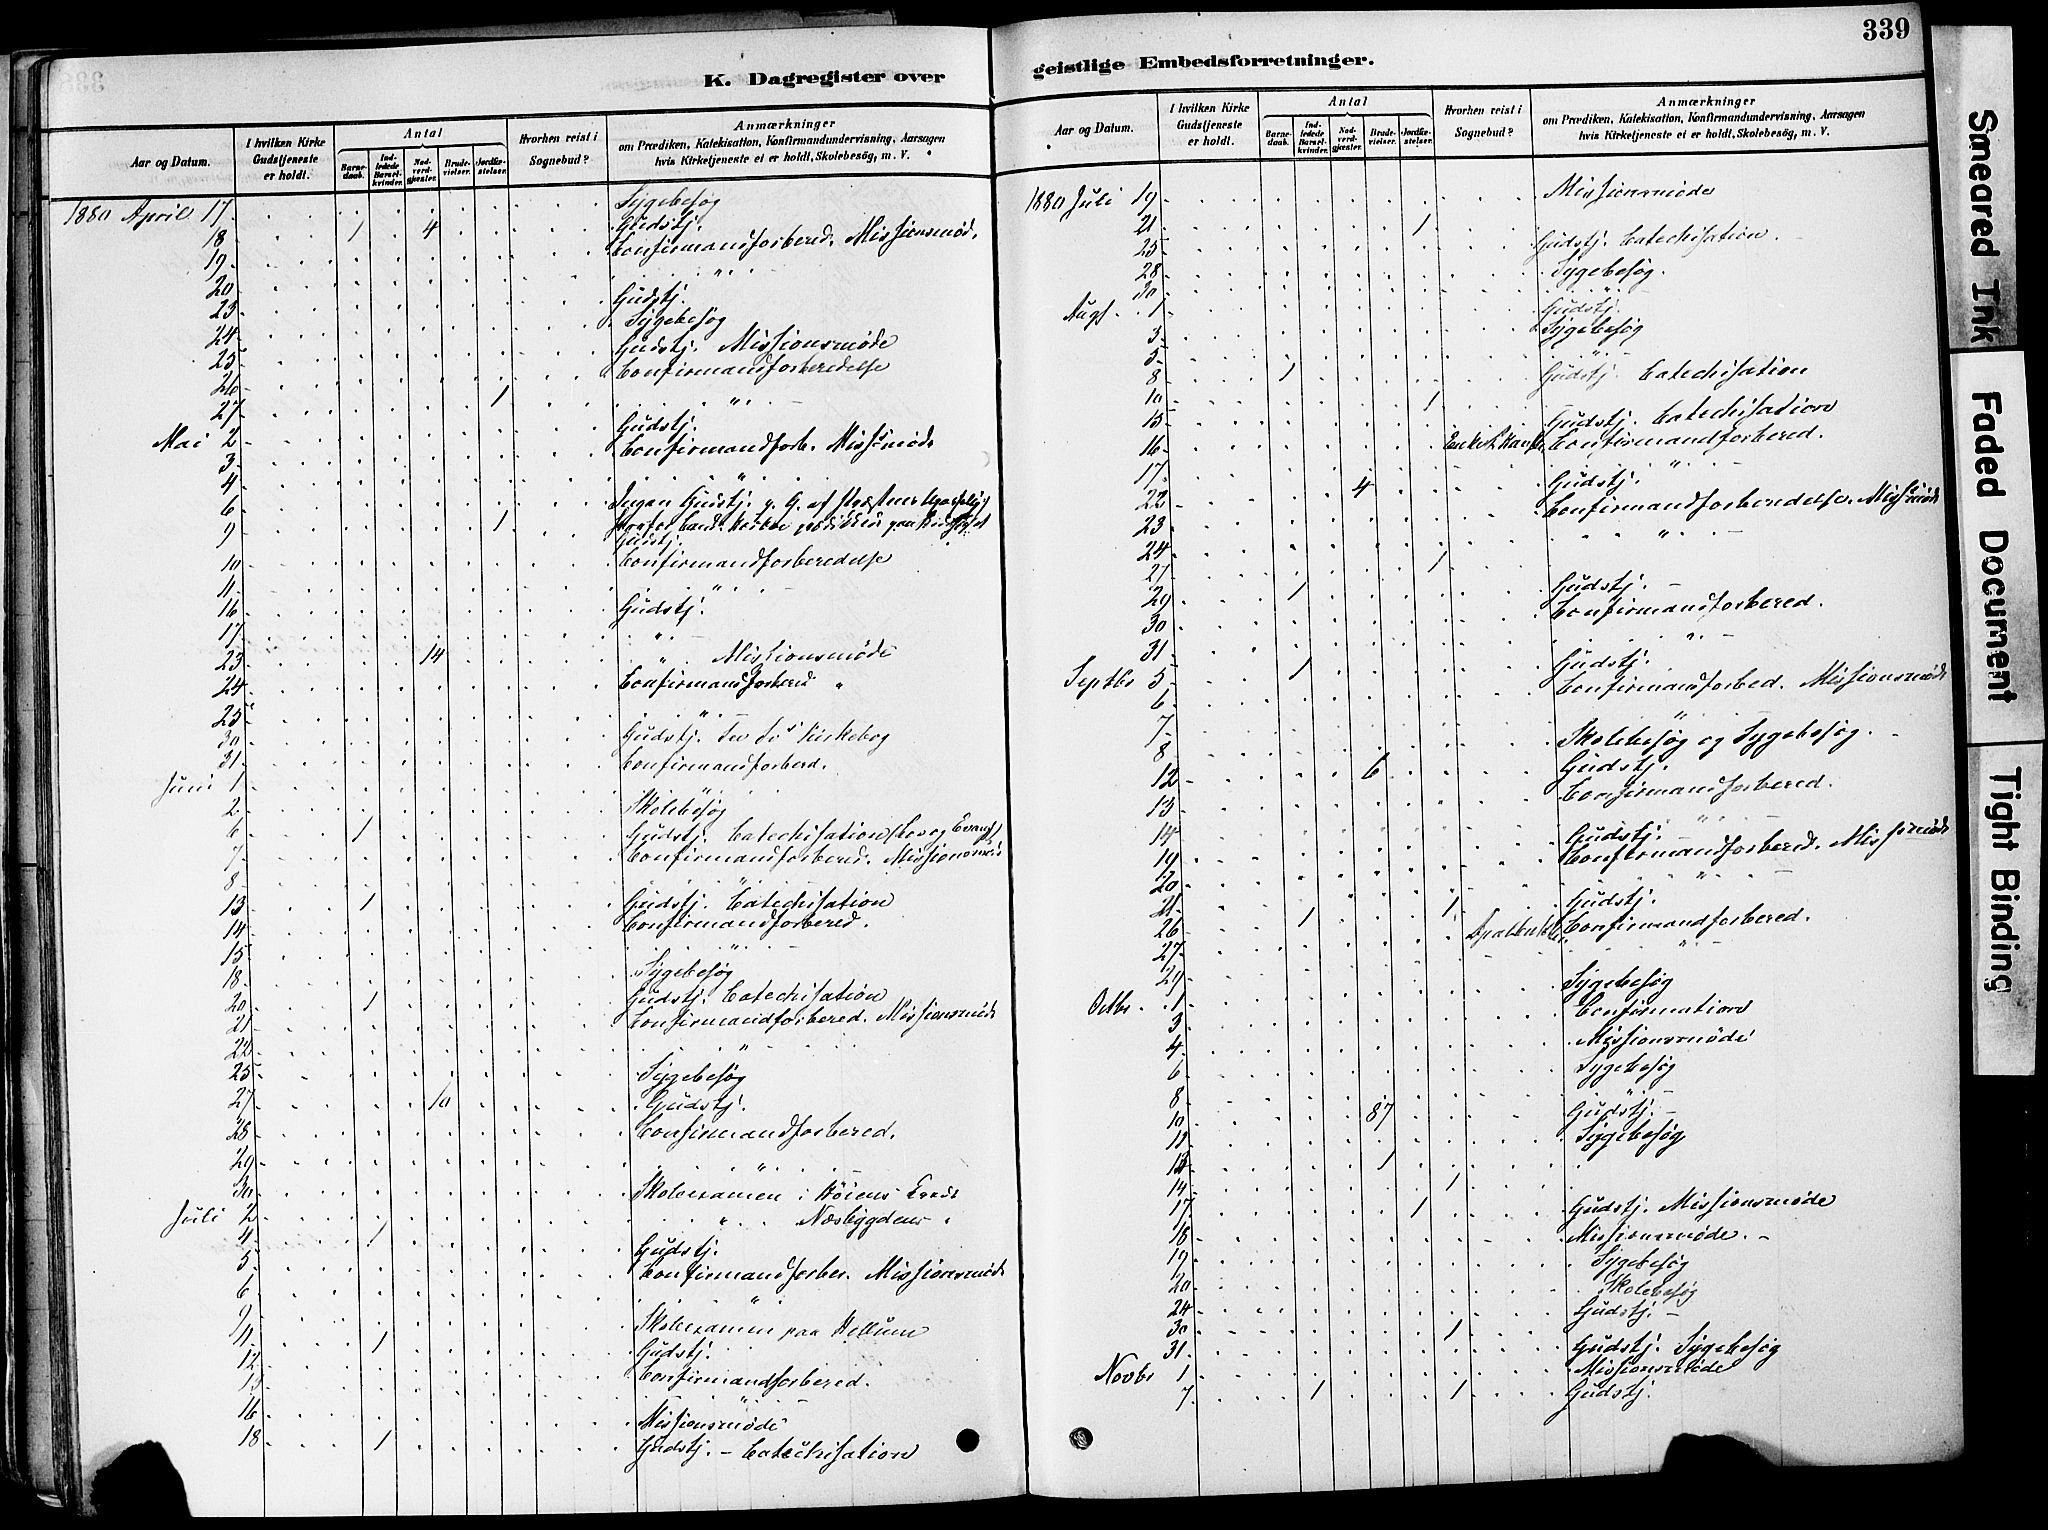 339
K. Dagregister over
geistlige Embedsforretninger.
Aar og Datum.
I hvilken Kirke Gudstjeneste er holdt.
Antal
Barnedaab.
Indledede Barselkvinder.
Nadverdgjester.
Brudevielser.
Jordfæstelser.
Hvorhen reist i Sognebud?
Anmærkninger
om Prædiken, Katekisation, Konfirmandundervisning, Aarsagen
hvis Kirketjeneste ei er holdt, Skolebesög, m. V.
1880 April 17. Sygebesøg
18 1 4 Gudstj.
19 Confirmandforbered. Missionsmød.
20 "
23 Gudstj.
24 Sygebesøg
25 Gudstj. Missionsmøde
26 Confirmandforberedelse
27 1 "
Mai 2 Gudstj.
3 Confirmandforb. Missømøde
4 "
6
9 1 Gudstj.
10 Confirmandforberedelse
11 "
16 Gudstj.
17 "
23 14 " Missionsmøde
24 Confirmandforbered "
25 "
30 Gudstj.
31 Confirmandforberd.
Juni 1 "
2 Skolebesøg
6 1 Gudstj. Catechisation
7 Confirmandforbered. Missionsmøde
8 "
13 1 Gudstj. Catechisation
14 Confirmandforbered.
15 "
18 Sygebesøg
20 1 Gudstj. Catechisation
21 Confirmandforbered. Missionsmøde
22 "
25 Sygebesøg
27 10 Gudstj.
28 Confirmandforbered.
29 "
30 Skoleexamen i
Juli 2 " Næsbygdens "
4 1 Gudstj.
5 Confirmandforber. Missionsmøde
6 "
9 Skoleexamen paa
11 1 Gudstj.
12 Confirmandforbered.
13 "
16 Missionsmøde
18 1 Gudstj. - Catechisation
Aar og Datum.
I hvilken Kirke Gudstjeneste er holdt.
Antal
Barnedaab.
Indledede Barselkvinder.
Nadverdgjester.
Brudevielser.
Jordfæstelser.
Hvorhen reist i Sognebud?
Anmærkninger
om Prædiken, Katekisation, Konfirmandundervisning, Aarsagen
hvis Kirketjeneste ei er holdt, Skolebesög, m. V.
1880 Juli 19 Missionsmøde
21 1
25 Gudstj. Catechisation.
28 Sygebesøg.
30 "
Augs. 1 Gudstj.
3 Sygebesøg
5 "
8 1 Gudstj. Catechisation
10 1
15 Gudstj. Catechisation
16 Confirmandforbered.
17 "
22 4 Gudstj.
23 Confirmandforberedelse. Missømøde
24 "
27 1
29 1 Gudstj.
30 Confirmandforbered.
31 "
Septbr 5 1 Gudstj.
6 Confirmandforbed. Missionsmøde
7 "
8 Skolebesøg og Sygebesøg.
12 6 Gudstj.
13 Confirmandforbered.
14 "
19 Gudstj.
20 Confirmandforbered. Missømøde
21 1 "
26 1 Gudstj.
27 Confirmandforbered.
29 "
Octbr. 1 Sygebesøg
3 Confirmation
4 Missionsmøde
6 Sygebesøg
8 "
10 87 Gudstj.
12 Sygebesøg
13 1
14 1
17 1 Gudstj. Missionsmøde
18 Missionsmøde.
19 Sygebesøg
20 Skolebesøg
24 Gudstj.
30 1
31 Gudstj. Sygebesøg
Novbr 1 Missionsmøde
7 1 1 Gudstj.
Smeared Ink
Faded Document
Tight Binding